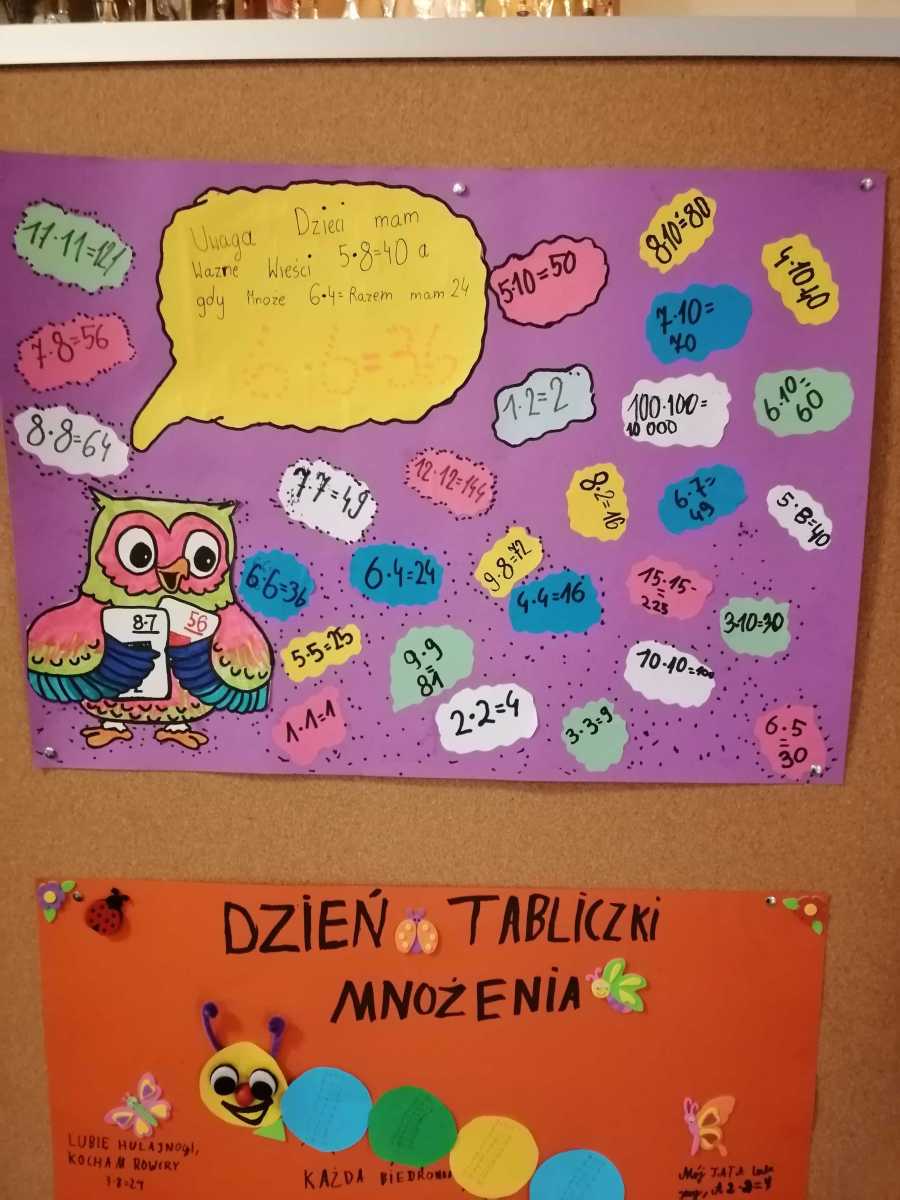 Uwaga Dzieci mam
Ważne Wieści 5·8=40 a
gdy Mnoże 6·4= Razem mam 24
6·6=36
11·11=121
7·8=56
8·8=64
5·10=50
8·10=80
4·10=
40
7·10=
70
1·2=2
100·100=
10 000
6·10=
60
7·7=49
12·12=144
8·2=16
6·7=
49
5·8=40
6·6=36
6·4=24
9·8=72
4·4=16
15·15-
=
225
3·10=30
5·5=25
9·9
=
81
10·10=100
1·1=1
2·2=4
3·3=9
6·5
=
30
8·7
56
DZIEŃ TABLICZKI
MNOŻENIA
LUBIĘ HULAJNOgI,
KOCHAM ROWERY
3·8=24
KAŻDA BIEDRONKA
Mój TATA
2·2=4